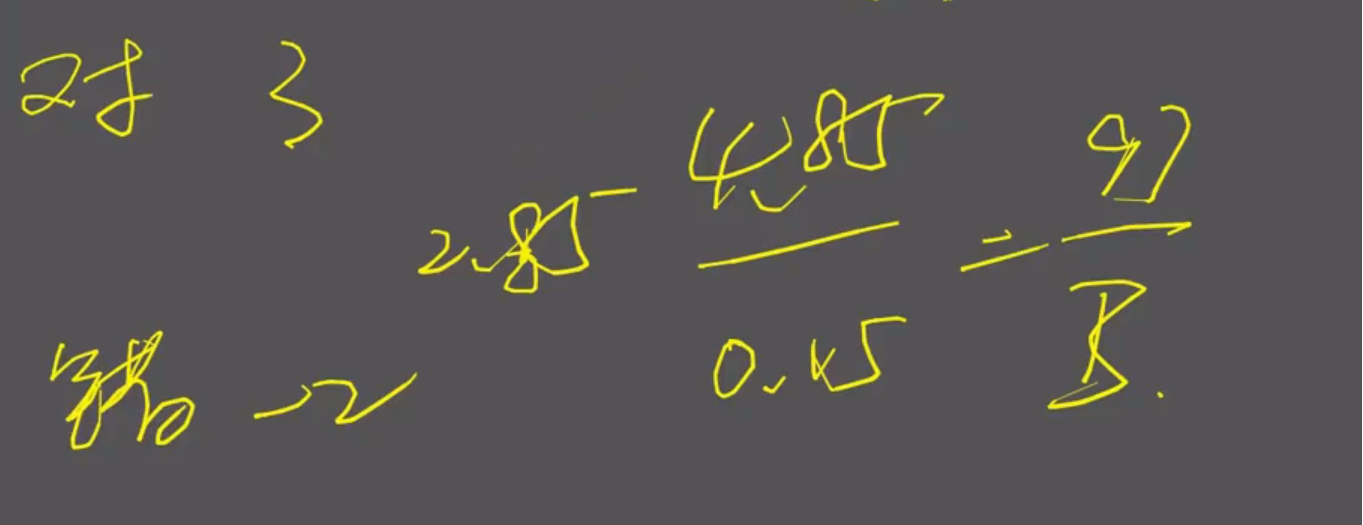 对 3
2.85 4.85/0.15 = 97/3.
错 -2